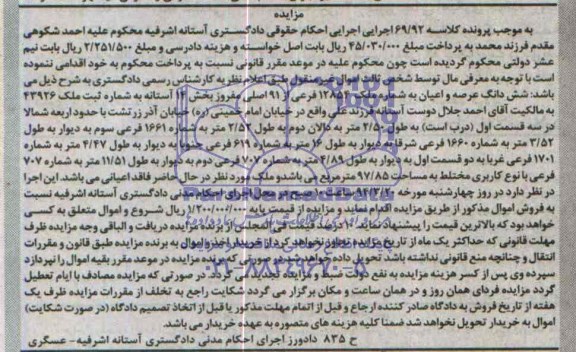 مزایده
به موجب پرونده کلاسه ۶۹/۹۲ اجرایی اجرایی احکام حقوقی دادگستری آستانه اشرفیه محکوم علیه احمد شکوهی
مقدم فرزند محمد به پرداخت مبلغ ۴۵/۰۳۰/۰۰۰ ریال بابت اصل خواسته و هزینه دادرسی و مبلغ ۲/۲۵۱/۵۰۰ ریال بابت نیم
عشر دولتی محکوم گردیده است چون محکوم علیه در موعد مقرر قانونی نسبت به پرداخت محکوم به خود اقدامی ننموده
است با توجه به معرفی مال توسط شخص ثالث اموال غیرمنقول طبق اعلام نظریه کارشناس رسمی دادگستری به شرح ذیل می
باشد: شش دانگ عرصه و اعیان به شماره ثبتی فرعی از ۹۱ اصلی مفروز بخش ۱۴ آستانه به شماره ثبت ملک ۴۳۹۲۶
به مالکیت آقای احمد جلال دوست آستانه فرزند علی واقع در خیابان امام خمینی (ره) خیابان آذر زر تشت با حدود اربعه شمالا
در سه قسمت اول (درب است) به طول ۲/۵۰ متر به دالان دوم به طول ۲/۵۲ متر به شماره ۱۶۶۱ فرعی سوم به دیوار به طول
۳/۵۲ متر به شماره ۱۶۶۰ فرعی شرقا به دیوار به طول ۱۶ متر به شماره ۶۱۹ فرعی جنوبا به دیوار به طول ۴/۴۷ متر به شماره
۱۷۰۱ فرعی غربا به دو قسمت اول به دیوار به طول ۴/۸۹ متر به شماره ۷۰۷ فرعی دوم به دیوار به طول ۱۱/۵۱ متر به شماره ۷۰۷
فرعی با نوع کاربری مختلط به مساحت ۹۷/۸۵ مترمربع می باشد و ملک مورد نظر در حال حاضر فاقد اعیانی می باشد. این اجرا
در نظر دارد در روز چهارشنبه مورخه ۹۴/۳/۲۰ ساعت ۱۰ صبح در محل اجرای احکام مدنی دادگستری آستانه اشرفیه نسبت
به فروش اموال مذکور از طریق مزایده اقدام نماید و مزایده از قیمت پایه ۱/۲۰۰/۰۰۰/۰۰۰ ریال شروع و اموال متعلق به کسی
خواهد بود که بالاترین قیمت را پیشنهاد نماید. ۱۰ درصد قیمت فی المجلس از برنده مزایده دریافت و الباقی وجه مزایده ظرف
مهلت قانونی که حداکثر یک ماه از تاریخ مزایده تجاوز نخواهد کرد از خریدار اخذ و اموال به برنده مزایده طبق قانون و مقررات
انتقال و چنانچه منع قانونی نداشته باشد تحویل داده خواهد شد در صورتی که برنده مزایده در موعد مقرر بقیه اموال را نپردازد
سپرده وی پس از کسر هزینه مزایده به نفع دولت ضبط و مزایده تجدید می گردد. در صورتی که مزایده مصادف با ایام تعطیل
گردد مزایده فردای همان روز و در همان ساعت و مکان برگزار می گردد شکایت راجع به تخلف از مقررات مزایده ظرف یک
هفته از تاریخ فروش به دادگاه صادر کننده ارجاع و قبل از اتمام مهلت مذکور یا قبل از اتخاذ تصمیم دادگاه (در صورت شکایت)
اموال به خریدار تحویل نخواهد شد ضمنا کلیه هزینه های متصوره به عهده خریدار می باشد.
ح ۸۳۵ دادورز اجرای احکام مدنی دادگستری آستانه اشرفیه - عسگری